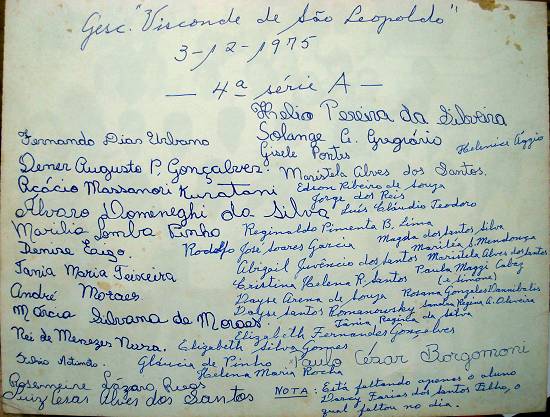 Gesc. "Visconde de São Leopoldo"
3-12-1975
— 4ª série A —
Helio Pereira da Silveira
Fernando Dias Urbano
Solange G. Gregório
Gisele Pontes
Helenice
Dener Augusto P. Gonçalvez
Maristela Alves dos Santos.
Acácio Massanori Kuratani
Edson Ribeiro de Souza
Jorge dos Reis
Álvaro Domeneghi da Silva
Luís Cláudio Teodoro
Marilia Lomba Pinho
Reginaldo Pimenta B. Lima
Magda dos Santos Silva
Denise
Rodolfo José Soares Garcia
Marilia S. Mendonça
Abigail Juvêncio dos Santos
Maristela Alves dos Santos
Tania Maria Teixeira
Cristina Helena R. Santos
Paula Maggi Cabaz
(e Simone)
André Moraes
Dayse Arena de Souza
Rosana Gonzales Dannibalis
Márcia Silvana de Moraes
Dayse Santos Romanowsky
Sandra Regina A. Oliveira
Tânia Regina da Silva
Elizabeth Fernandes Gonçalves
Rei de Menezes
Elizabeth Silva Gomes
Paulo Cezar Borgomoni
Gláucia de Pinho
Helena Maria Rocha
Rosemeire Lázaro
Luiz Cesar Alves dos Santos
NOTA: Está faltando apenas o aluno
Darcy Farias dos Santos Filho, o
qual faltou no dia.